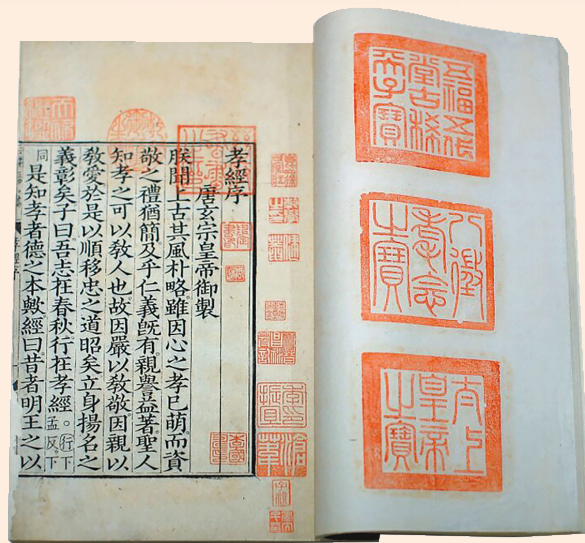 五福五代
堂古稀
天子寶
八徵
耄念
之寶
太上
皇帝
之寶
孝經序
唐玄宗皇帝御製
朕聞上古其風朴略雖因心之孝已萌而資
敬之禮猶簡及乎仁義旣有親譽益著聖人
知孝之可以敎人也故因嚴以敎敬因親以
敎愛於是以順移忠之道昭矣立身揚名之
義彰矣子曰吾志在春秋行在孝經。行下孟反。下
同是知孝者德之本歟經曰昔者明王之以
季振宜印
滄葦